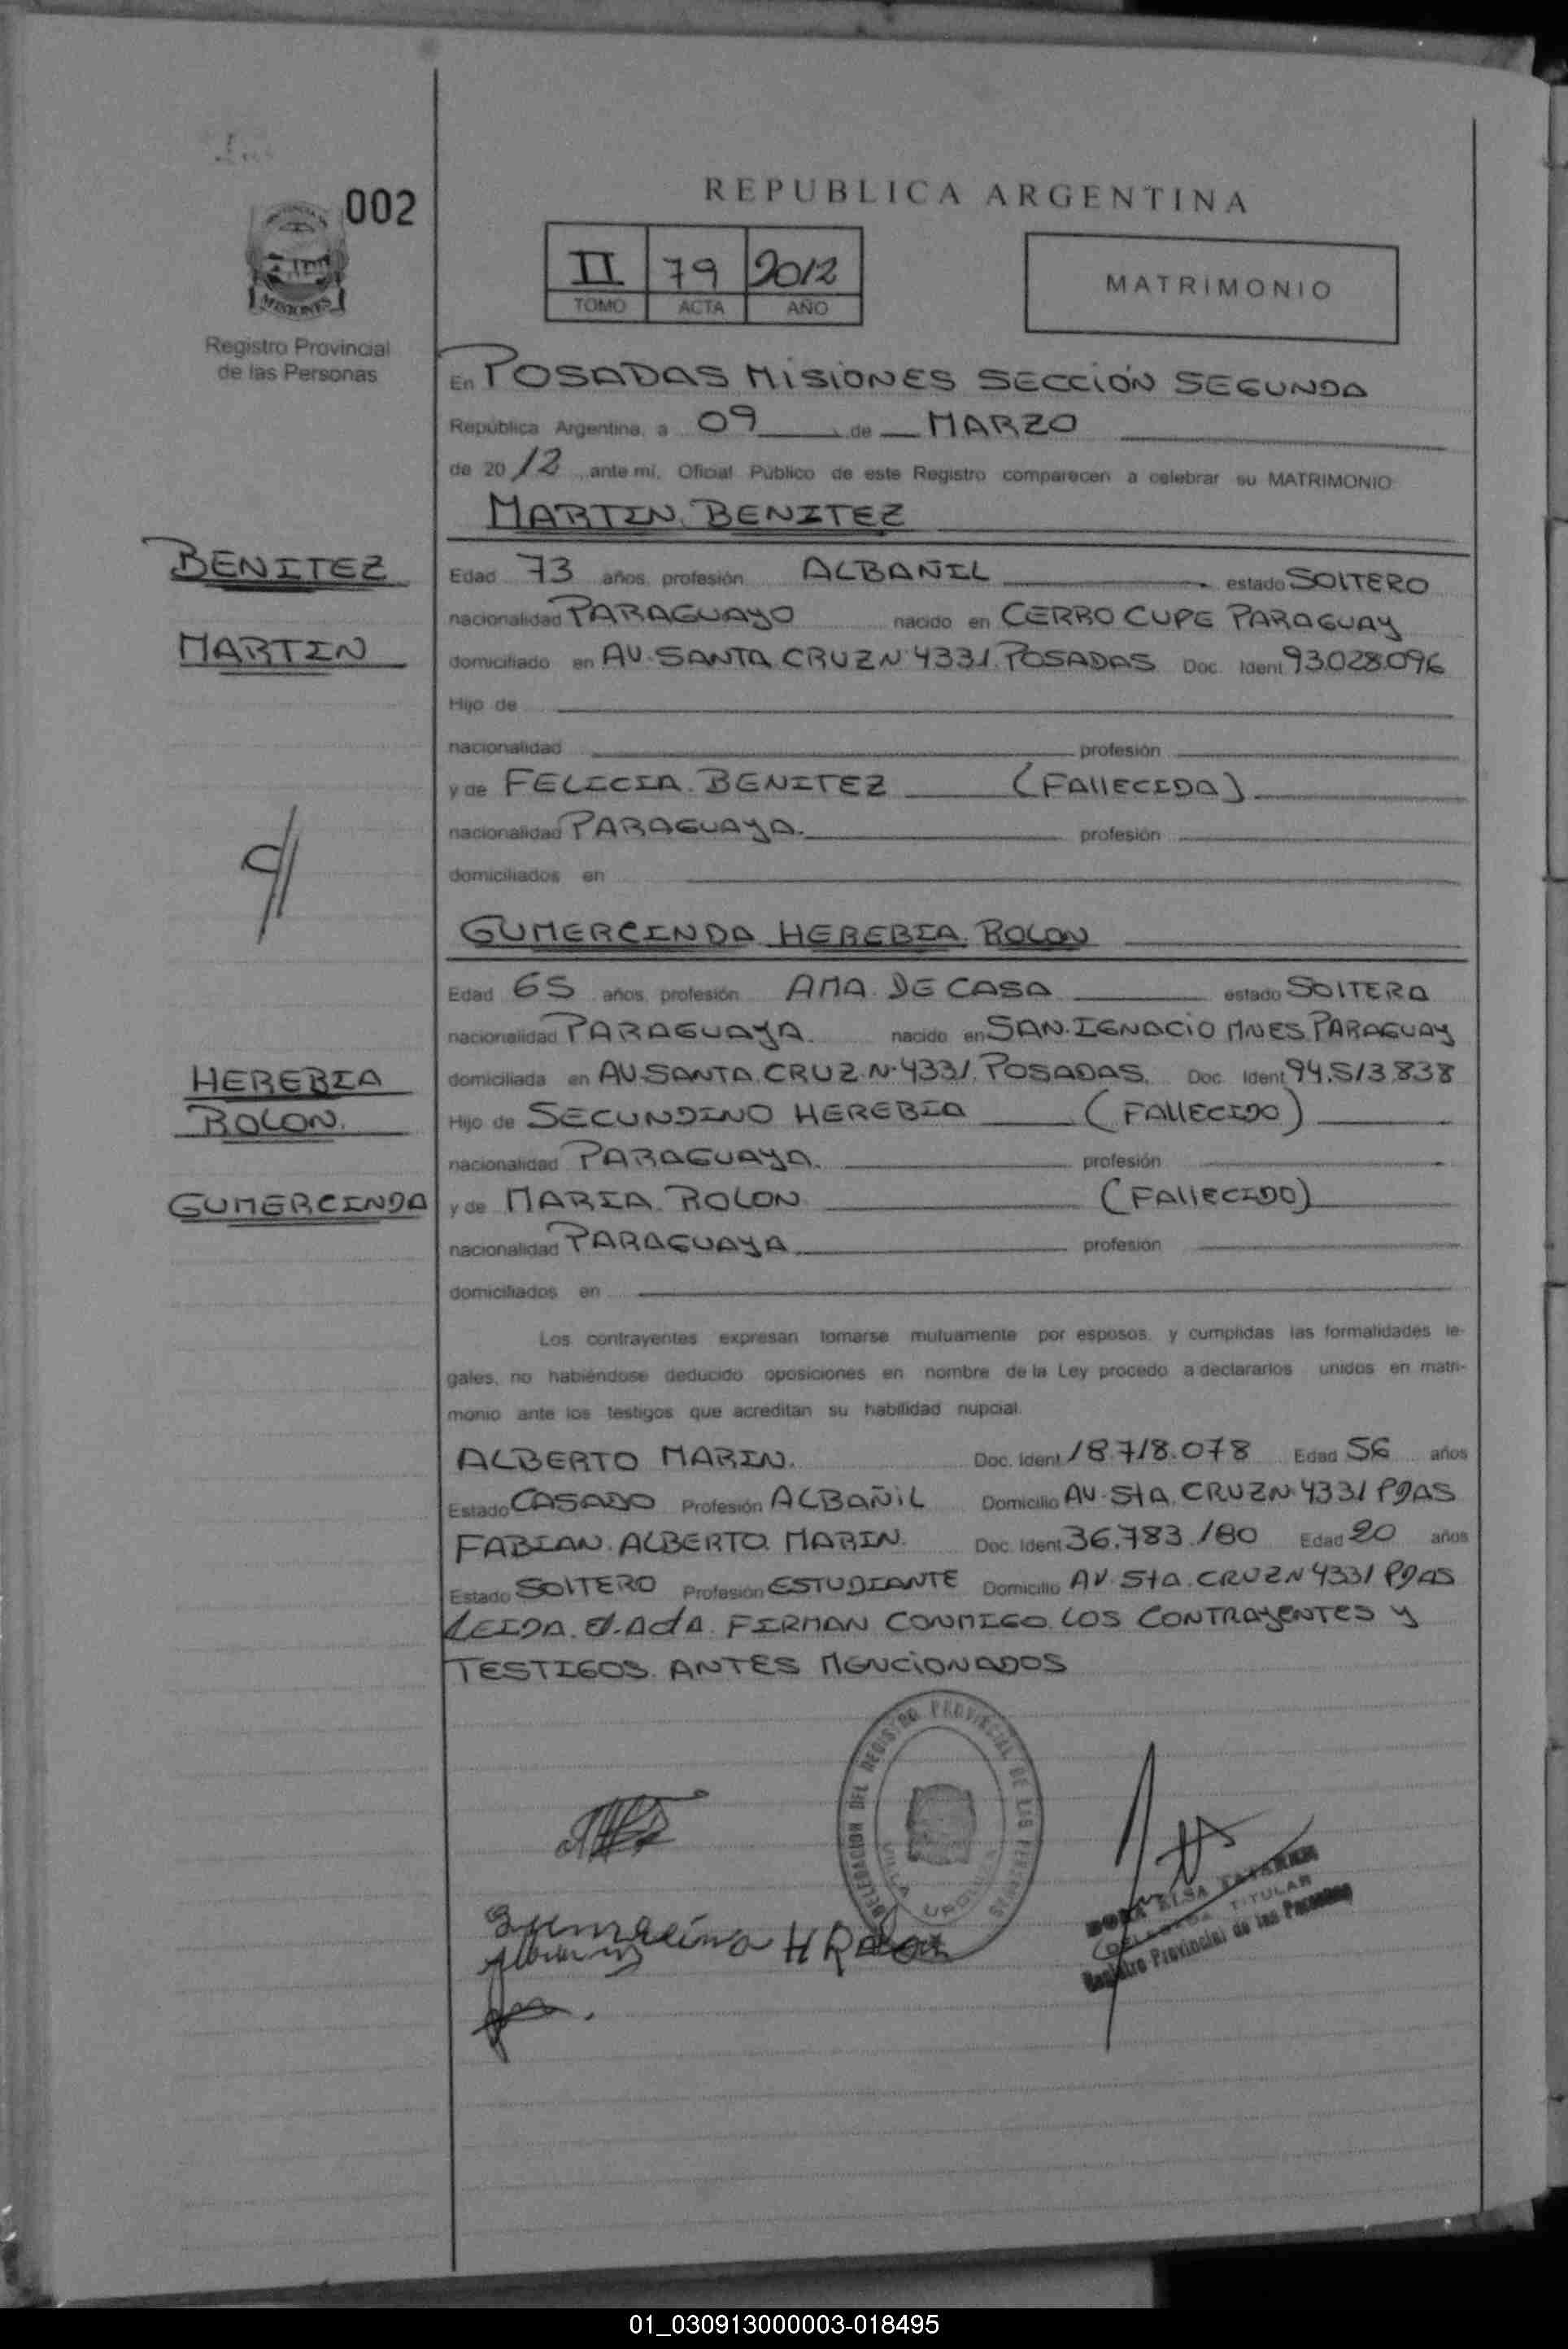 002
REPUBLICA ARGENTINA
II 79 2012
TOMO ACTA AÑO
MATRIMONIO
MISIONES
Registro Provincial
de las Personas
En POSADAS MISIONES SECCIÓN SEGUNDA
República Argentina, a 09 de MARZO
de 2012, ante mí, Oficial Público de este Registro comparecen a celebrar su MATRIMONIO
MARTIN. BENITEZ
BENITEZ
MARTIN
Edad 73 años, profesión ALBAÑIL estado SOLTERO
nacionalidad PARAGUAYO nacido en CERRO CUPE PARAGUAY
domiciliado en AV. SANTA CRUZ N. 4331. POSADAS Doc. Ident 93.028.096
Hijo de
nacionalidad profesión
y de FELICIA. BENITEZ (FALLECIDA)
nacionalidad PARAGUAYA. profesión
domiciliados en
GUMERCINDA HEREBIA. ROLON
Edad 65 años, profesión AMA DE CASA estado SOLTERA
nacionalidad PARAGUAYA. nacido en SAN. IGNACIO MNES PARAGUAY
HEREBIA
ROLON.
GUMERCINDA
domiciliada en AV. SANTA. CRUZ. N. 4331. POSADAS. Doc. Ident 94.513.838
Hijo de SECUNDINO HEREBIA (FALLECIDO)
nacionalidad PARAGUAYA. profesión
y de MARIA. ROLON (FALLECIDO)
nacionalidad PARAGUAYA profesión
domiciliados en
Los contrayentes expresan tomarse mutuamente por esposos, y cumplidas las formalidades le-
gales, no habiéndose deducido oposiciones en nombre de la Ley procedo a declararlos unidos en matri-
monio ante los testigos que acreditan su habilidad nupcial.
ALBERTO MARIN. Doc. Ident 18.718.078 Edad 56 años
Estado CASADO Profesión ALBAÑIL Domicilio AV. STA. CRUZ N. 4331 PDAS
FABIAN. ALBERTO. MARIN. Doc. Ident 36.783.180 Edad 20 años
Estado SOLTERO Profesión ESTUDIANTE Domicilio AV. STA. CRUZ N 4331 PDAS
LEIDA. EL ACTA. FIRMAN CONMIGO LOS CONTRAYENTES Y
TESTIGOS. ANTES MENCIONADOS
DELEGACION DEL REGISTRO PROVINCIAL DE LAS PERSONAS
VILLA URQUIZA
ELSA
TITULAR
Registro Provincial de las Personas
01_030913000003-018495